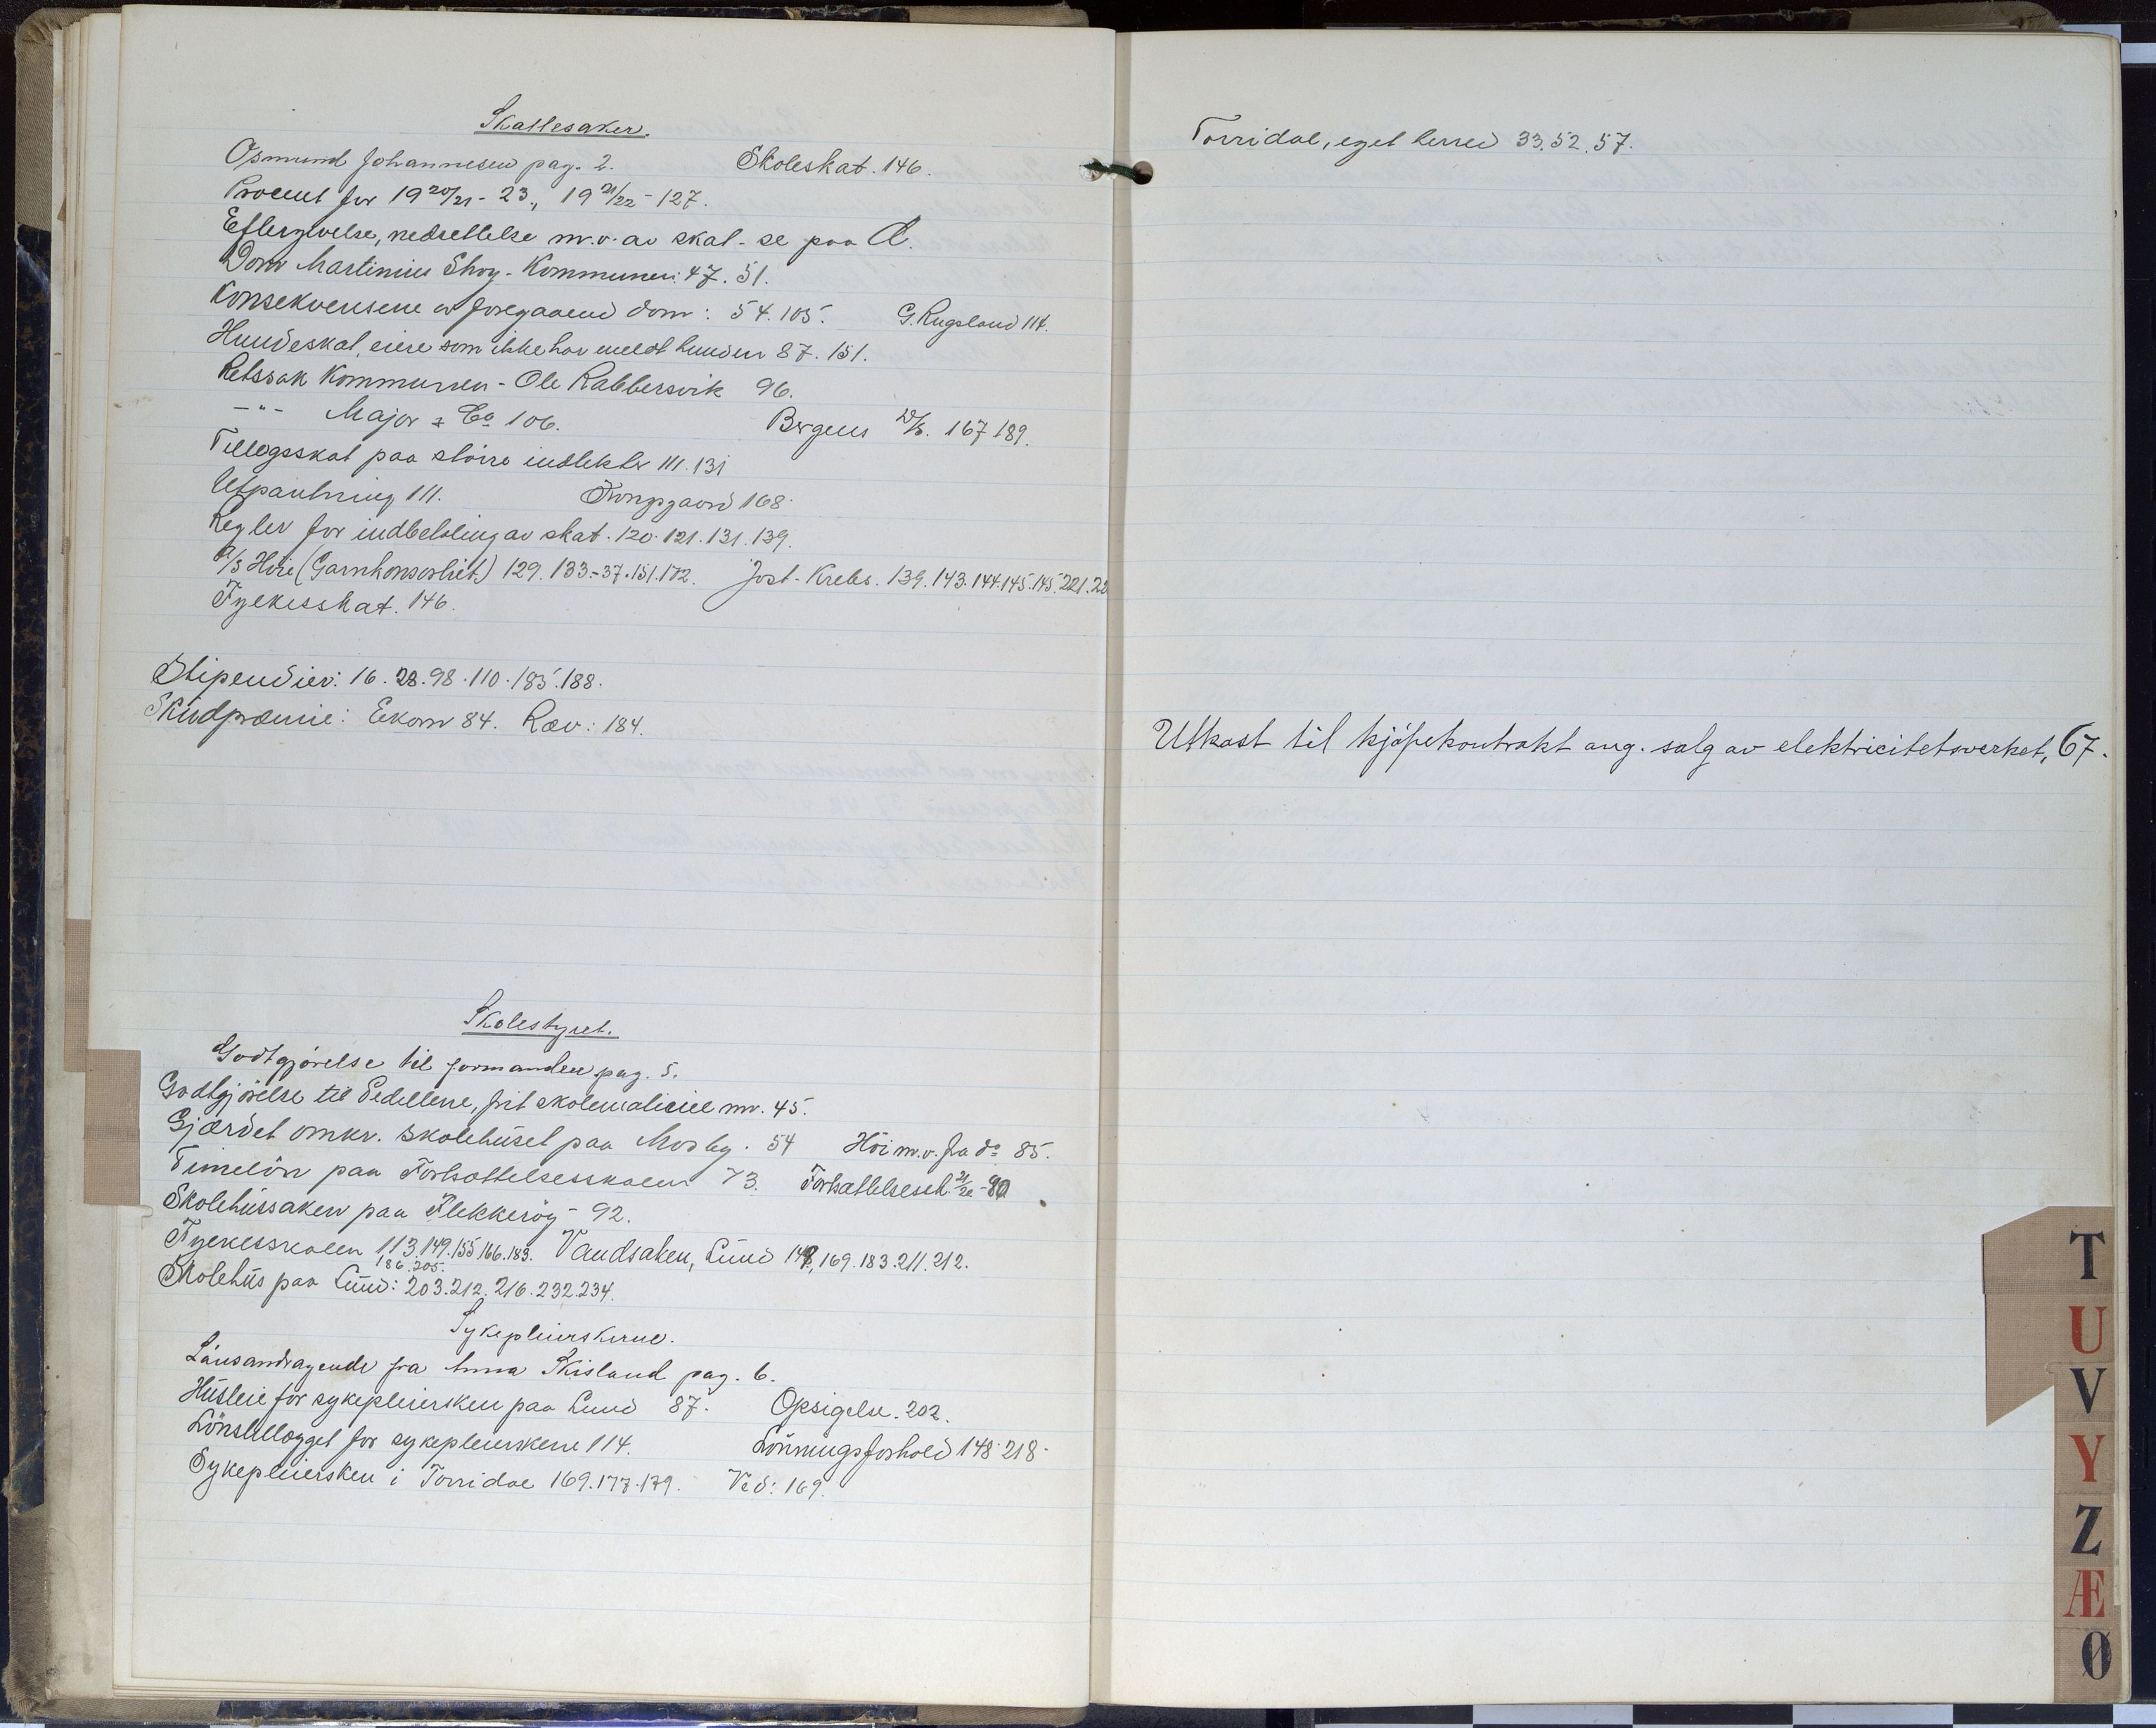 Skattesaker.
Osmund Johannesen pag. 2. Skoleskat. 146.
Procent for 19 20/21 - 23., 19 21/22 - 127.
Eftergivelse, nedsettelse m.v. av skat - se paa A.
Dom Martinius Skog - Kommunen: 47. 51.
Konsekvensene av foregaaend dom: 54. 105. G. Rugsland 114.
Hundeskat, eiere som ikke har meldt hunden 87. 151.
Retssak Kommunen - Ole Rabbersvik 96.
-"- Major & Co 106. Bergens 167 189.
Tillegsskat paa större indtekter 111. 131
Utpantning 111. Kongsgaard 168.
Regler for indbetaling av skat. 120. 121. 131. 139.
A/S Höie (Garnkonsortiet) 129. 133.-37. 151. 172. Jost. Krebs. 139. 143. 144. 145. 145. 221. 22
Fylkesskat. 146.
Stipendier: 16. 28. 98. 110. 185. 188.
Skudpræmie: Ekorn 84. Ræv: 184.
Skolestyret.
Godtgjörelse til formanden pag. 5.
Godtgjörelse til Pedellene, frit skolemateriel mv. 45.
Gjærdet omkr. skolehuset paa Mosby. 54 Höi m.v. fra do 85.
Timelön paa Fortsættelsesskolen 73. Fortsættelsessk. 21/22 - 90
Skolehussaken paa Flekkeröy - 92.
Fylkesskolen 113. 149. 155 166. 183. Vandsaken, Lund 148, 169. 183. 211. 212.
186. 205.
Skolehus paa Lund: 203. 212. 216. 232. 234.
Sykepleierskerne.
Lånsandragende fra Anna Skisland pag. 6.
Husleie for sykepleiersken paa Lund 87. Opsigelse. 202.
Lönstillægget for sykepleierskene 114. Lönningsforhold 148. 218.
Sykepleiersken i Torridal 169. 177. 179. Ved: 169.
Torridal, eget herred 33. 52. 57.
Utkast til kjöpekontrakt ang. salg av elektricitetsverket, 67.
T
U
V
Y
Z
Æ
Ø